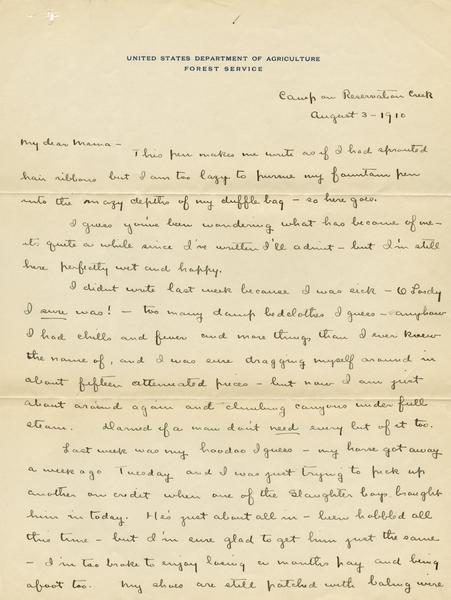 1
UNITED STATES DEPARTMENT OF AGRICULTURE
FOREST SERVICE
Camp on Reservation Creek
August 3 - 1910
My dear Mama -
This pen makes me write as if I had sprouted
hair ribbons but I am too lazy to pursue my fountain pen
into the mazy depths of my duffle bag - so here goes.
I guess you've been wondering what has become of me -
it's quite a while since I've written I'll admit - but I'm still
here perfectly wet and happy.
I didnt write last week because I was sick - O Lordy
I sure was! - too many damp bedclothes I guess - anyhow
I had chills and fever and more things than I ever knew
the name of, and I was sure dragging myself around in
about fifteen attenuated pieces - but now I am just
about around again and climbing canyons under full
steam. Darned if a man dont need every bit of it too.
Last week was my hoodoo I guess - my horse got away
a week ago Tuesday and I was just trying to pick up
another on credit when one of the Slaughter boys brought
him in today. He's just about all in - been hobbled all
this time - but I'm sure glad to get him just the same
- I'm too broke to enjoy losing a months pay and being
afoot too. My shoes are still patched with baling wire